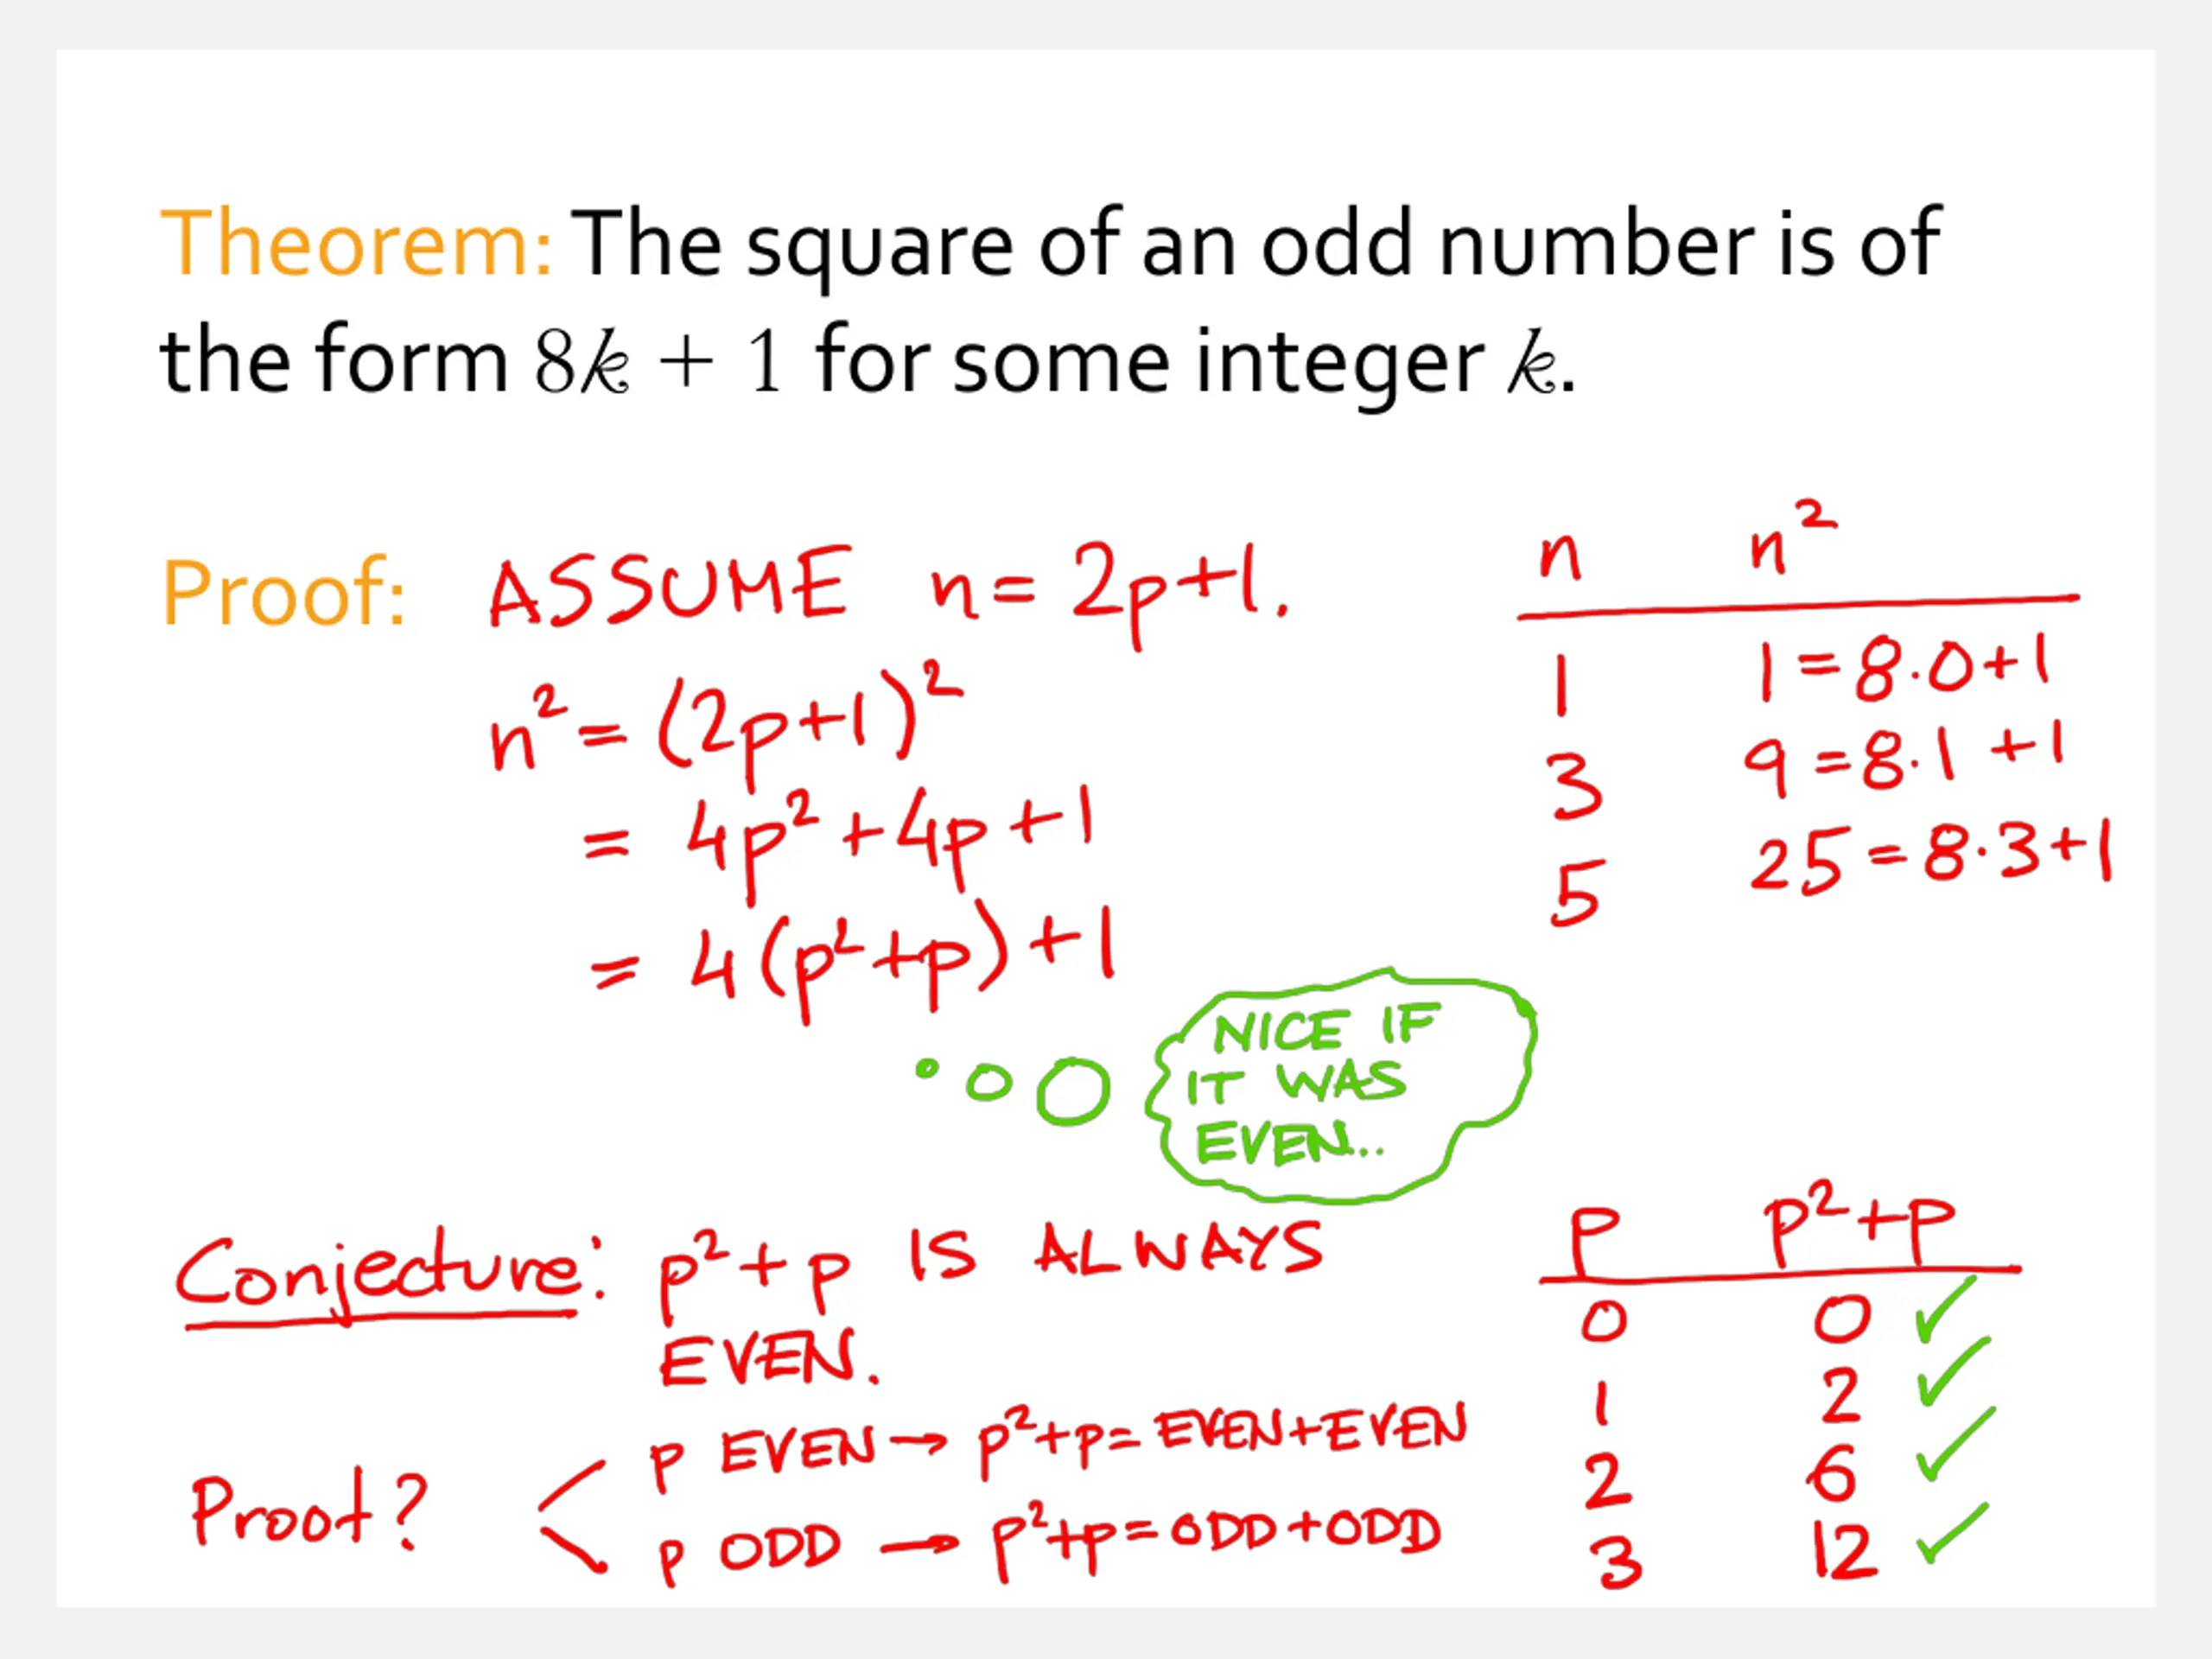 Theorem: The square of an odd number is of
the form 8k + 1 for some integer k.
Proof: ASSUME n = 2p+1.
n² = (2p+1)²
= 4p² + 4p + 1
= 4(p²+p) + 1
n n²
1 1 = 8·0+1
3 9 = 8·1 +1
5 25 = 8·3+1
NICE IF
IT WAS
EVEN..
Conjecture: p² + p IS ALWAYS
EVEN.
Proof? p EVEN → p²+p = EVEN+EVEN
p ODD → p²+p = ODD+ODD
p p²+p
0 0 ✓
1 2 ✓
2 6 ✓
3 12 ✓